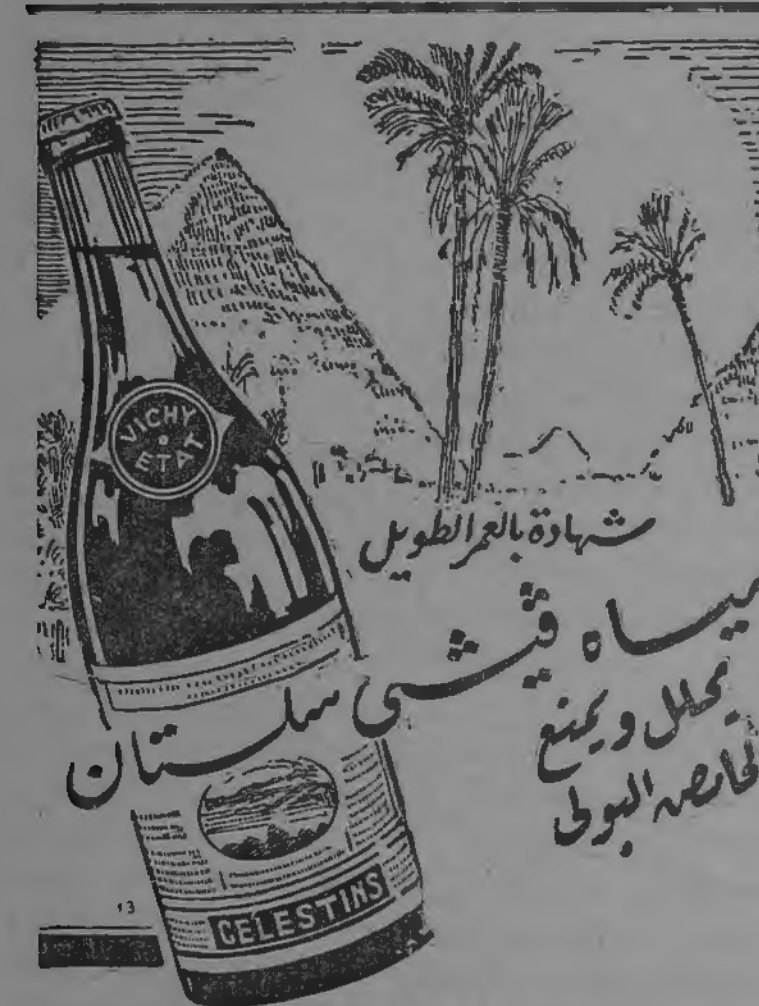 VICHY
ETAT
شهادة بالعمر الطويل
مياه ڤيشى سلستان
يحلل ويمنع
الحامض البولى
CELESTINS
13